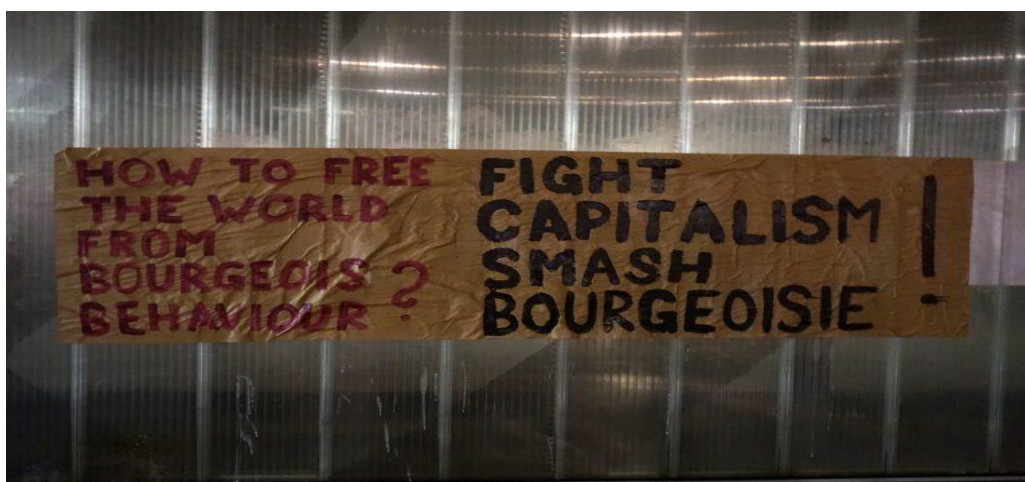 HOW TO FREE
THE WORLD
FROM
BOURGEOIS
BEHAVIOUR ?
FIGHT
CAPITALISM
SMASH
BOURGEOISIE !